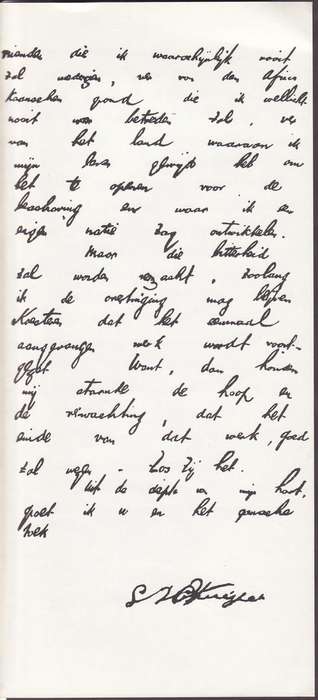 vrienden die ik waarschijnlijk nooit
zal wederzien, ver van den Afrik
kaanschen grond die ik wellicht
nooit weer betreden zal, ver
van het land waaraan ik
mijn leven gewijd heb om
het te openen voor de
beschaving en waar ik een
eigen natie zag ontwikkelen.
Maar die bitterheid
zal worden verzacht, zoolang
ik de overtuiging mag blijven
koesteren dat het eenmaal
aangevangen werk wordt voort-
gezet. Want, dan houden
mij staande de hoop en
de verwachting, dat het
einde van dat werk, goed
zal wezen - Zoo zij het.
Uit de diepte van mijn hart,
groet ik u en het gansche
Volk